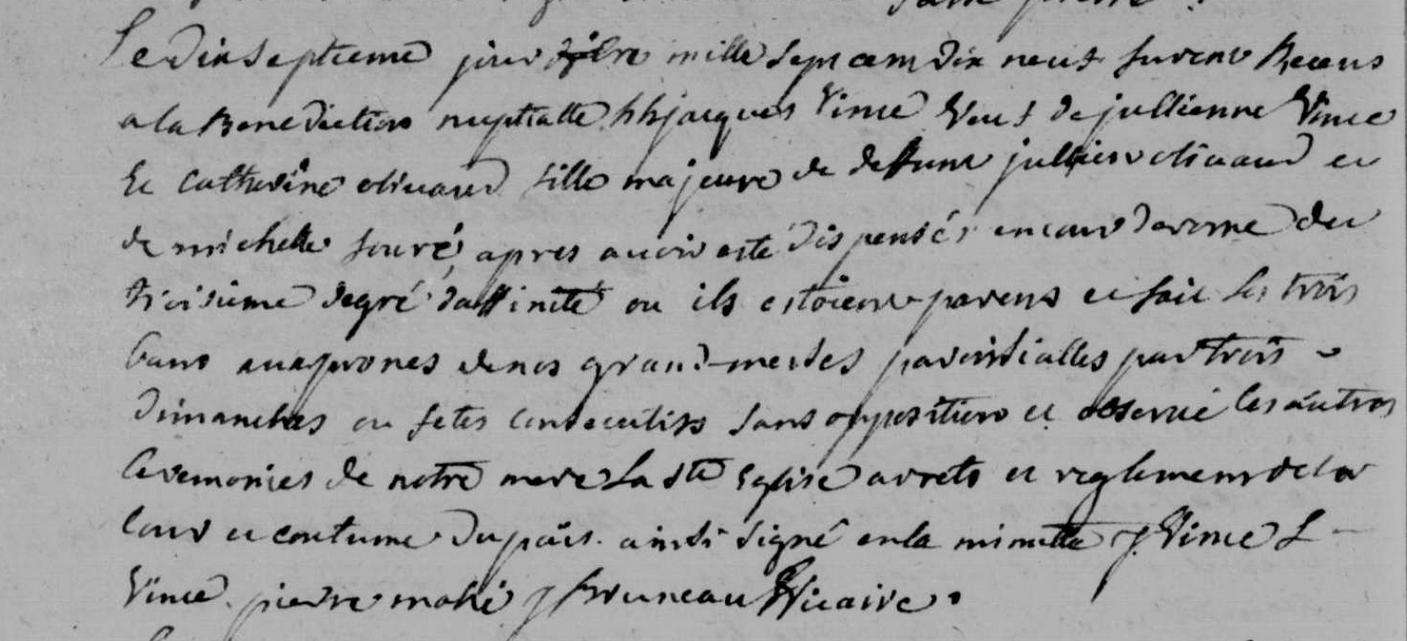 Le dix septieme jour mille sept cens dix neuf furent Receus
a la Benediction nuptialle hh jacques Vince Veuf de jullienne Vince
Et Catherine olivaud fille majeure de deffunt jullien olivaud et
de michelle fouré, apres avoir esté dispensés en cour de rome du
troisieme degré daffinité ou ils estoient parens et fait les trois
bans aux prones de nos grand-messes paroissialles par trois
dimanches ou fetes consecutifs sans opposition et observé les autres
Ceremonies de notre mere La Ste Eglise arrets et reglemens de la
Cour et coutume du païs. ainsi signé en la minutte J Vince L
Vince. pierre mahé J Bruneau Vicaire.